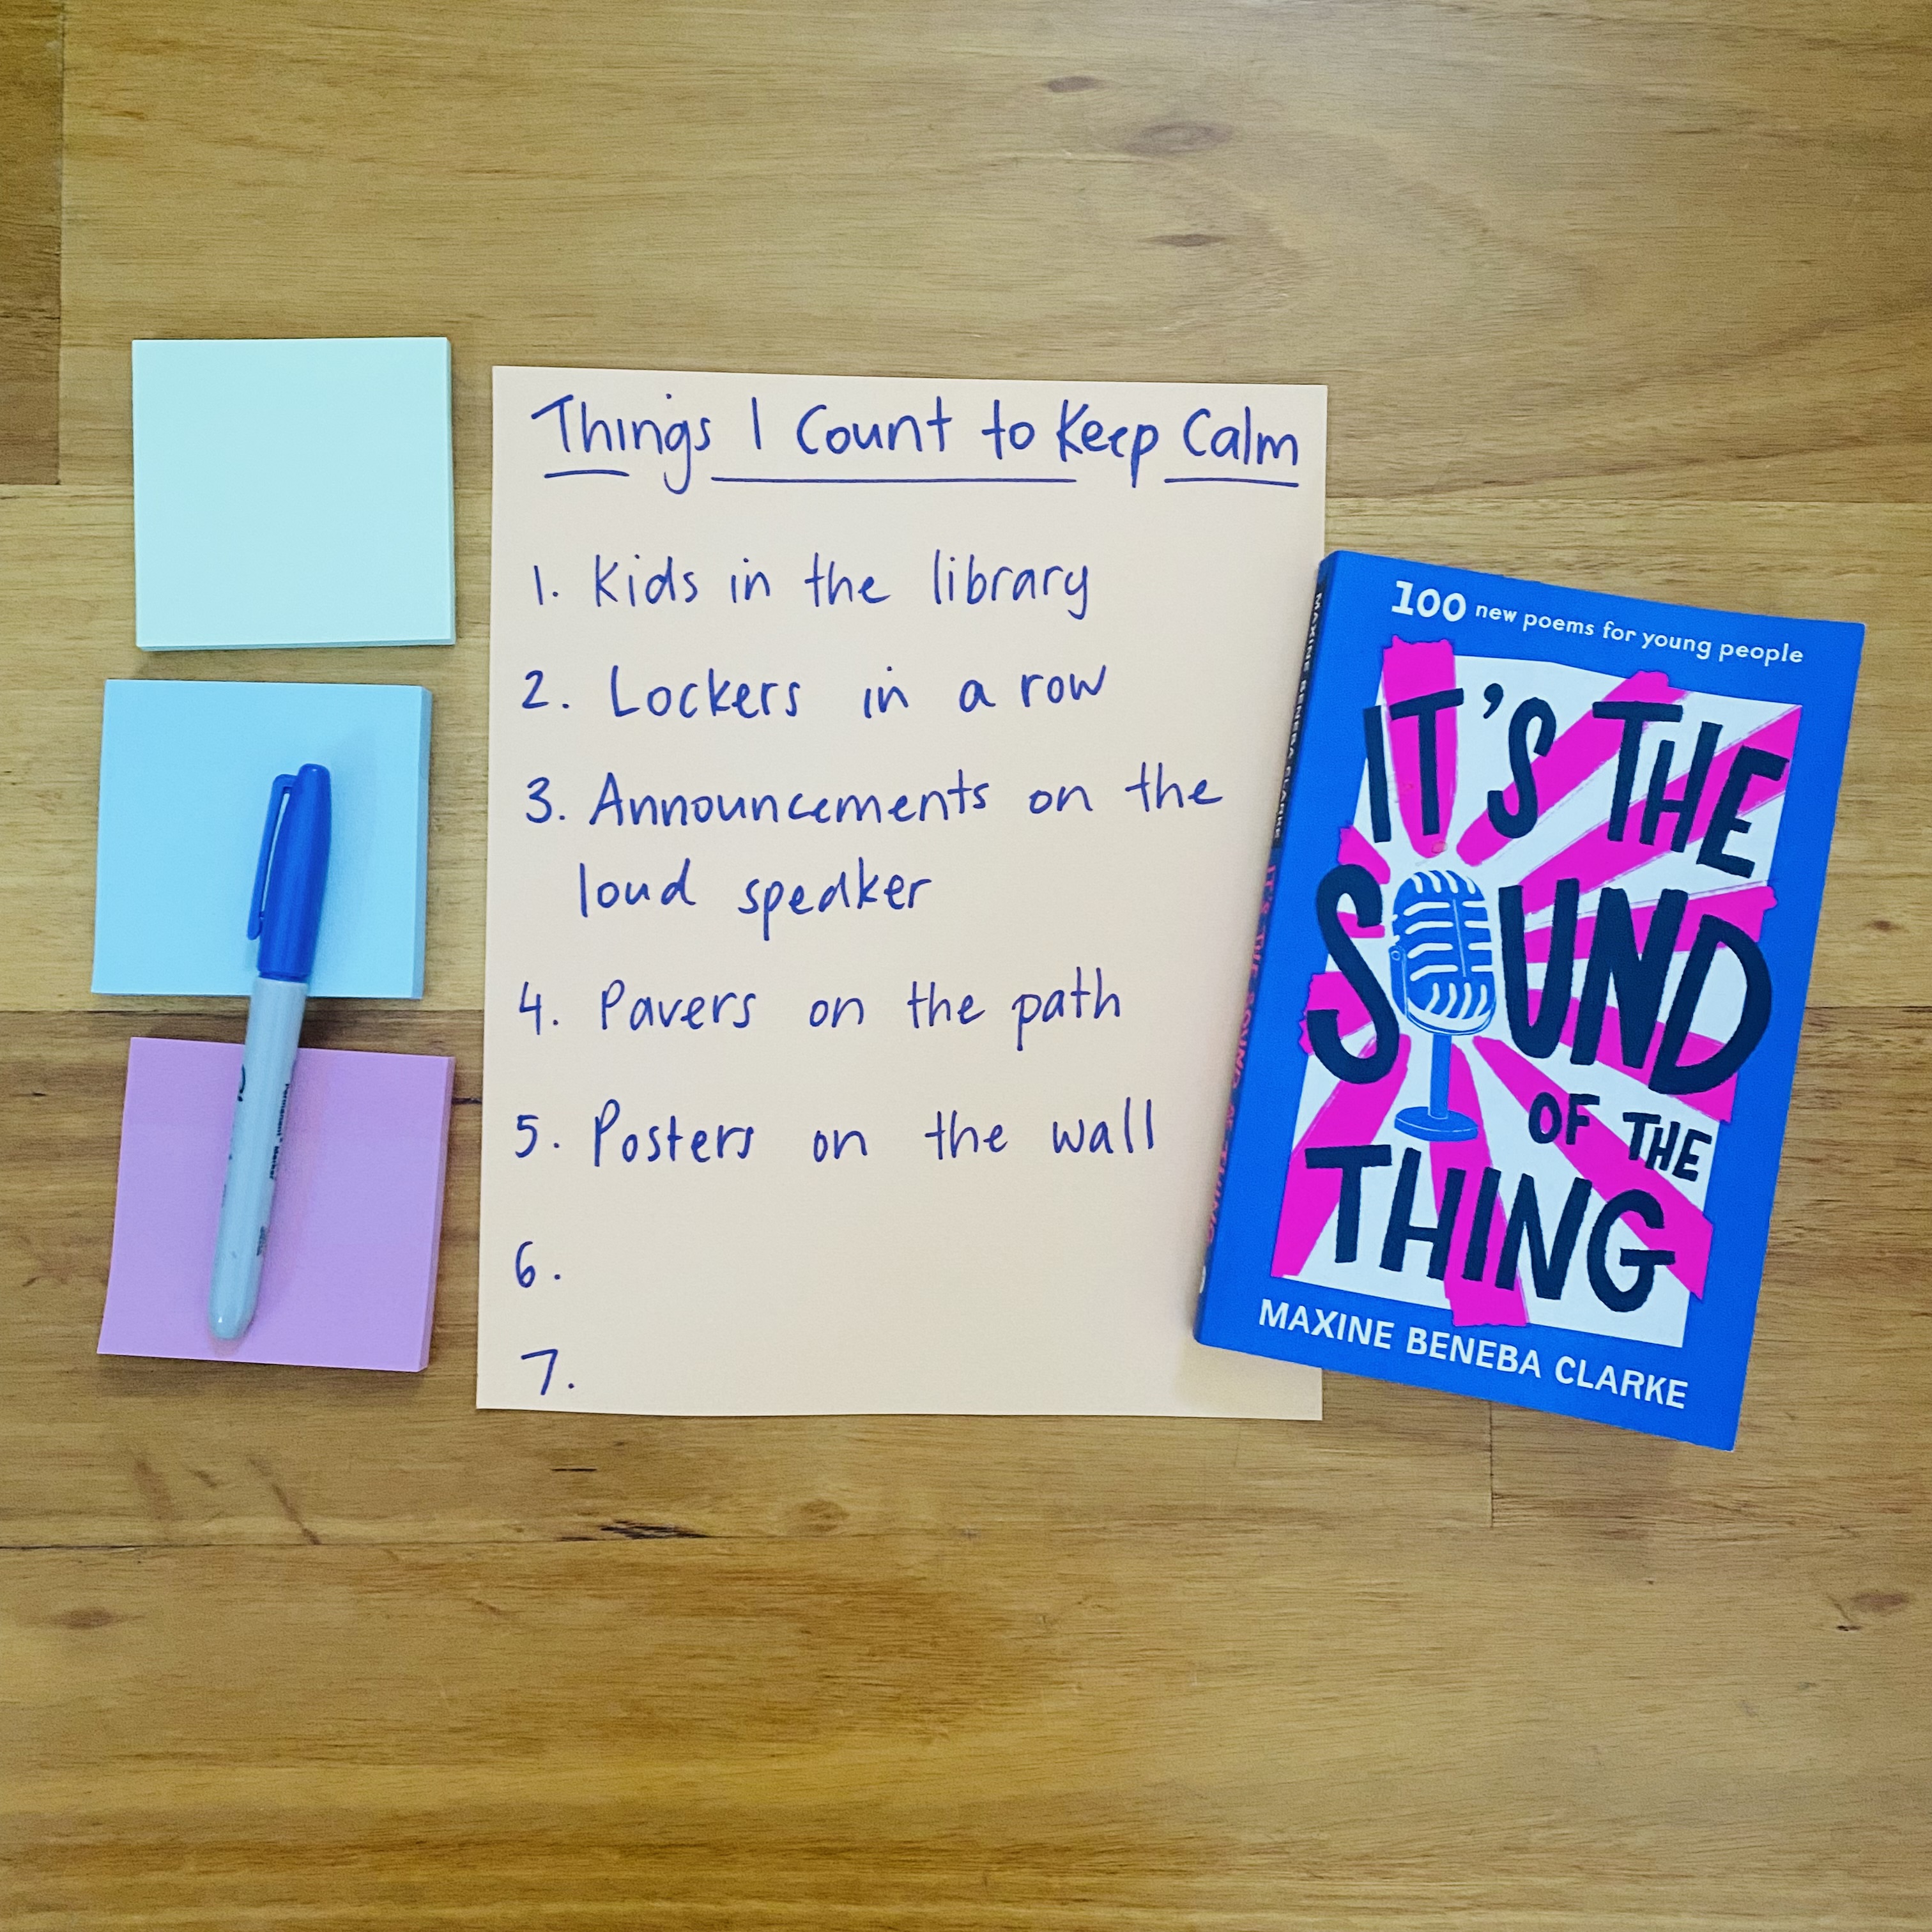 Things I Count to Keep Calm
1. Kids in the library
2. Lockers in a row
3. Announcements on the
loud speaker
4. Pavers on the path
5. Posters on the wall
6.
7.
100 new poems for young people
IT'S THE
SOUND
OF THE
THING
MAXINE BENEBA CLARKE
MAXINE BENEBA CLARKE IT'S THE SOUND OF THE THING
Permanent Marker